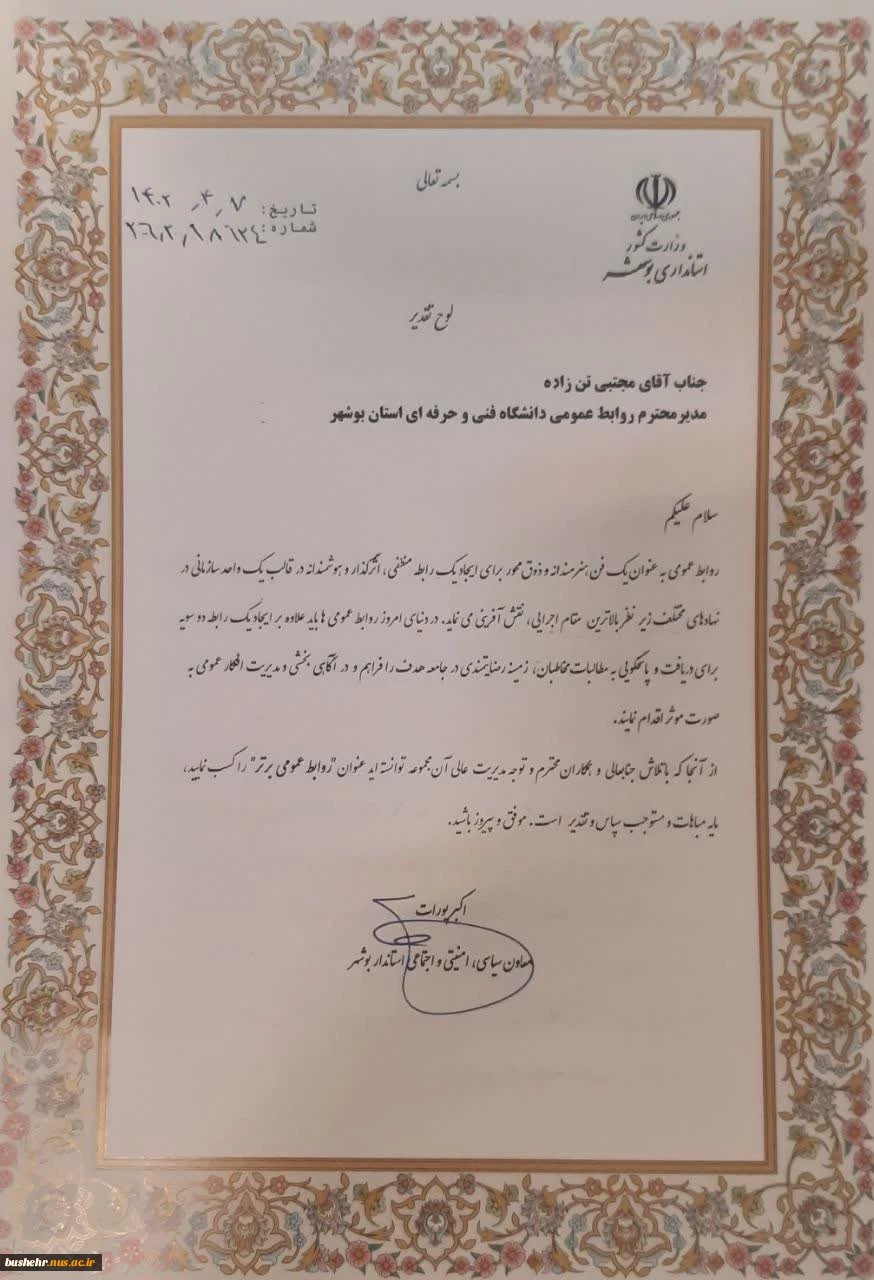 بسمه تعالی
جمهوری اسلامی ایران
وزارت کشور
استانداری بوشهر
تاریخ: ۱۴۰۲ ,۴ ,۷
شماره:
لوح تقدیر
جناب آقای مجتبی تن زاده
مدیرمحترم روابط عمومی دانشگاه فنی و حرفه ای استان بوشهر
سلام علیکم
روابط عمومی به عنوان یک فن، هنرمندانه و ذوق محور برای ایجاد یک رابطه منطقی، اثرگذار و هوشمندانه در قالب یک واحد سازمانی در
نهادهای مختلف زیر نظر بالاترین مقام اجرایی، نقش آفرینی می نماید. در دنیای امروز روابط عمومی ها باید علاوه بر ایجاد یک رابطه دو سویه
برای دریافت و پاسخگویی به مطالبات مخاطبان، زمینه رضایتمندی در جامعه هدف را فراهم و در آگاهی بخشی و مدیریت افکار عمومی به
صورت موثر اقدام نمایند.
از آنجا که با تلاش جنابعالی و همکاران محترم و توجه مدیریت عالی آن مجموعه توانسته اید عنوان "روابط عمومی برتر" را کسب نمایید،
مایه مباهات و مستوجب سپاس و تقدیر است. موفق و پیروز باشید.
اکبر پورات
معاون سیاسی، امنیتی و اجتماعی استاندار بوشهر
bushehr.nus.ac.ir